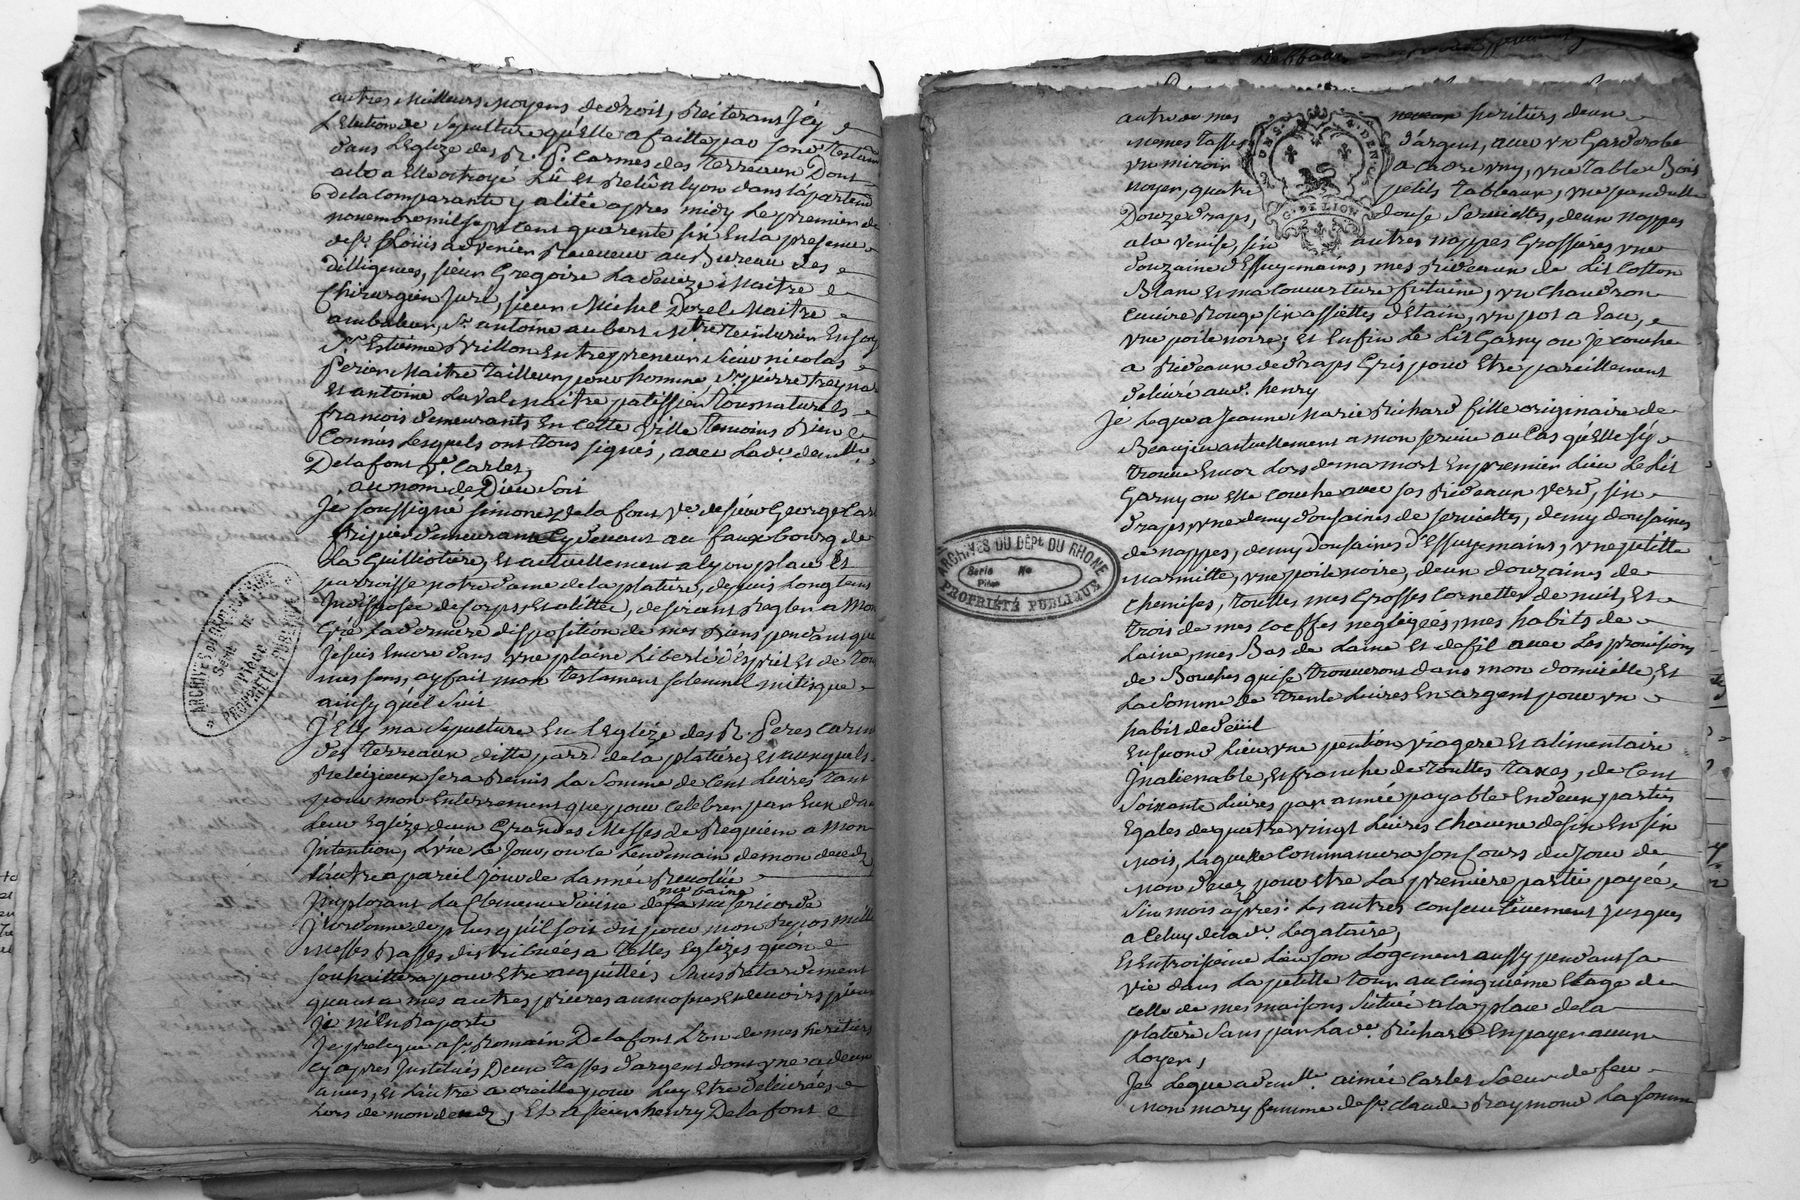 autres meilleurs moyens de droit, Reiterant Jcy
L'Election de sepulture qu'Elle a faitte par sond. testam
dans L'Eglize des R. P. Carmes des Terreaux Dont
acte a Elle octroyé Lû et Relû a lyon dans l'apartem
de la Comparante y alitée apres midy Le premier de
novembre mil sept cent quarente six En la presence
de Sr. Loüis advenier Receveur au Bureau des
dilligences, sieur Gregoire Ladeveze Maitre
Chirurgien Juré, sieur Michel Dorel Maitre
ambaleur, Sr. antoine aubert Mtre teinturier En soye
Sr. Estienne Brillon Entrepreneur sieur nicolas
perier Maitre Tailleur pour homme, Sr. pierre treyna
Et antoine Laval Maitre patissier tous naturels
françois demeurants En cette Ville temoins Bien
Connus Lesquels ont tous signés, avec Lad. demlle
Delafont Ve. Carles,
au nom de Dieu soit
Je soussigné simonne de la font Ve. de sieur George Carl
Fripier demeurant Cy devant au fauxbourg de
La Guillotiere, Et actuellement a lyon place Et
parroisse notre dame de la platiere, depuis Longtems
Indisposée de Corps, Et alittée, desirant Regler a mon
Gré La derniere disposition de mes Biens pendant que
Je suis Encore dans une plaine Liberté d'Esprit Et de tous
mes sens, ay fait mon testament solemnel mistique
ainsy qu'el suit
J'Ely ma sepulture En L'Eglize des R. Peres carm
des terreaux ditte parr. de la platiere, Et auxquels
Religieux sera Remis La somme de Cent Livres tant
pour mon Enterrement que pour celebrer par Eux dans
Leur Eglize deux Grandes Messes de Requiem a mon
Intention, L'une Le Jour, ou le Lendemain de mon decedz
L'autre a pareil Jour de L'année Revoluë
Implorant La Clemence divine de sa misericorde
J'ordonne de plus qu'il soit dit pour mon Repos mille
Messes Basses distribuées a telles Eglizes qu'on
souhaittera pour etre acquittées sans Retardement
quant a mes autres prieres aumones Et devoirs pieux
Je m'En Raporte
Je prelegue a Sr. Romain Delafont L'un de mes heritiers
cy apres Institués Deux tasses d'argent dont une a deux
anses, Et L'autre a oreille pour Luy Etre delivrées
Lors de mon decedz, Et a sieur henry Delafont
autre de mes heritiers deux
memes tasses d'argent, avec un Garderobe
un miroir a Cadre uny, une table Bois
noyer, quatre petits tableaux, une pendulle
Douze draps, douse serviettes, deux nappes
a la Venise, six autres nappes Grossieres une
douzaine d'Essuy-mains, mes Rideaux de Lit Cotton
Blanc Et ma Couverture futaine, un chaudron
cuivre Rouge six assiettes d'Etain, un pot a Eau,
une poile noire; Et Enfin Le Lit Garny ou Je couche
a Rideaux de draps Gris pour Etre pareillement
delivré aud. henry
Je Legue a Jeanne Marie Richard fille originaire de
Beaujeu actuellement a mon service au Cas qu'Elle s'y
trouve Encor Lors de ma mort En premier Lieu Le Lit
Garny ou Elle couche avec ses Rideaux verd, six
draps, une demy dousaines de serviettes, demy dousaines
de nappes, demy Dousaines d'Essuy-mains, une petitte
Marmitte, une poile noire, deux douzaines de
Chemises, touttes mes Grosses Cornettes de nuit, Et
trois de mes Coeffes negligées, mes habits de
Laine, mes Bas de Laine Et de fil avec Les provisions
de Bouches qui se trouveront dans mon domicille, Et
La somme de trente Livres En argent pour un
habit de deüil
En second Lieu une pention viagere Et alimentaire
Inalienable, Et franche de touttes taxes, de Cent
soixante Livres par année payable En deux parties
Egales de quatre vingt Livres Chacune de six En six
mois, Laquelle Commancera son Cours du Jour de
mon decez pour Etre La premiere partie payée
six mois apres: Les autres consecutivement Jusques
a Celuy de lad. Legataire,
Et En troisieme Lieu son Logement aussy pendant sa
vie dans La petitte tour au Cinquieme Etage de
celle de mes maisons située a la place de la
platiere sans par Lade. Richard En payer aucun
Loyer,
Je Legue a dmlle. aimée Carles soeur de feu
mon mary femme de Sr. Claude Raymond La somm
ARCHIVES DU DEPt. DU RHONE
Serie No
Pièce
PROPRIÉTÉ PUBLIQUE
G. DE LION